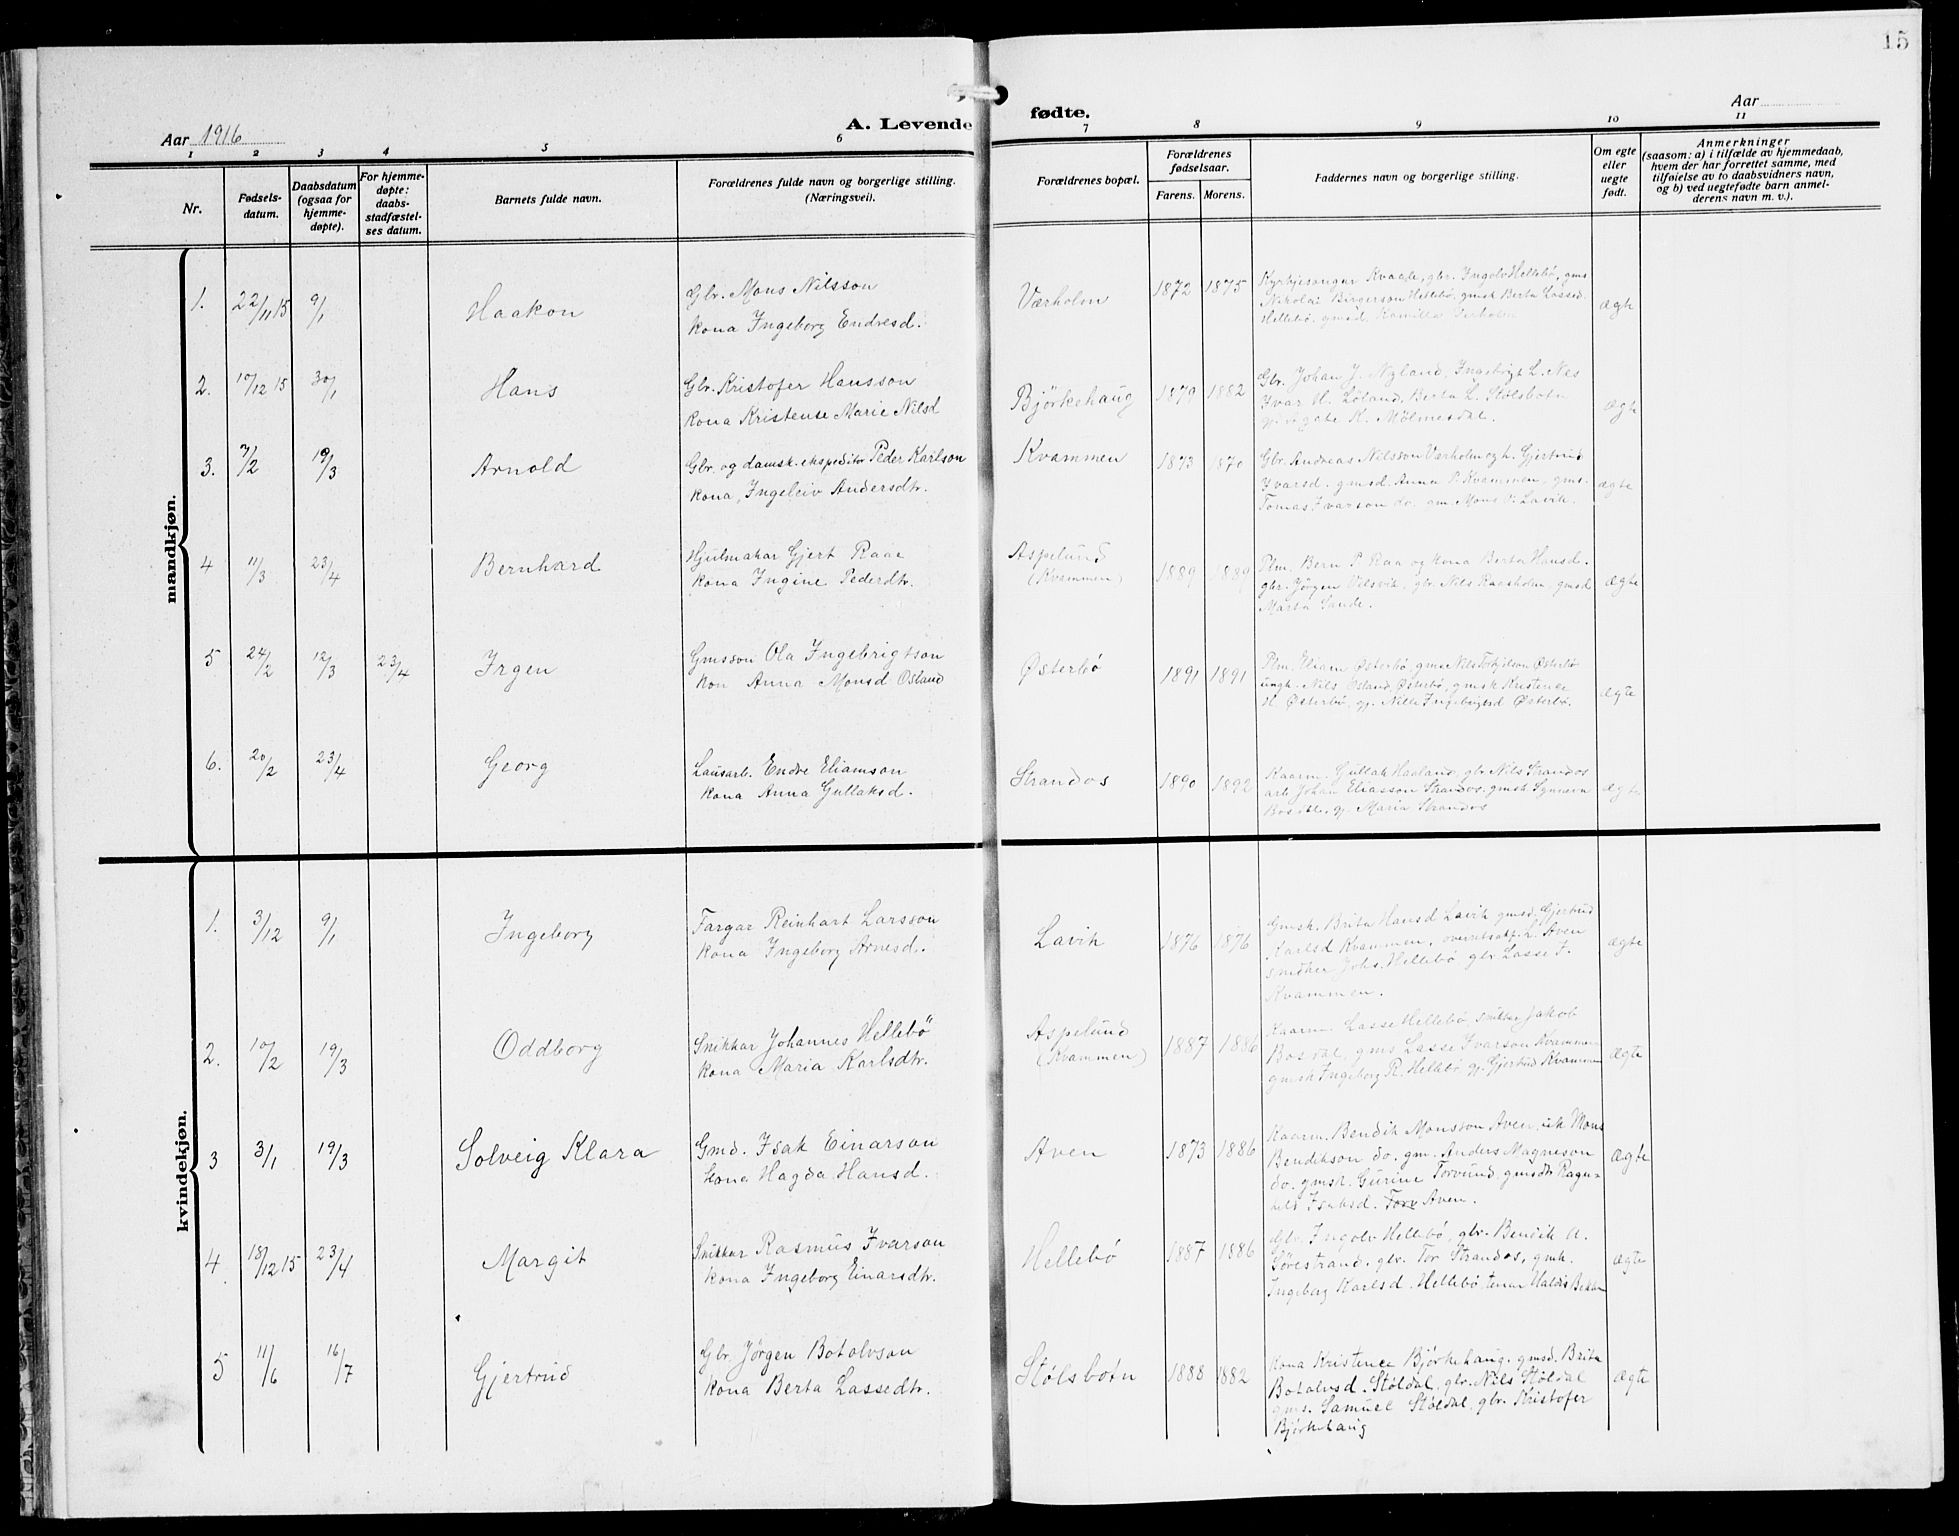 15
Aar 1916
A. Levende fødte.
Aar
1 2 3 4 5 6 7 8 9 10 11
Nr.
Fødsels-
datum.
Daabsdatum
(ogsaa for
hjemme-
døpte).
For hjemme-
døpte:
daabs-
stadfæstel-
ses datum.
Barnets fulde navn.
Forældrenes fulde navn og borgerlige stilling.
(Næringsvei).
Forældrenes bopæl.
Forældrenes
fødselsaar.
Farens. Morens.
Faddernes navn og borgerlige stilling.
Om egte
eller
uegte
født.
Anmerkninger
(saasom: a) i tilfælde av hjemmedaab,
hvem der har forrettet samme, med
tilføielse av to daabsvidners navn,
og b) ved uegtefødte barn anmel-
derens navn m. v.).
mandkjøn.
1. 22/11 15 9/1 Haakon
Gbr. Mons Nilsson
kona Ingeborg Endresd.
Værholm 1872 1875
Kyrkjesongar Kvaale, gbr. Ingolv Hellebø, gms
Nikolai Birgerson Hellebø, gmsk Berta Lassed
Hellebø, gmsd. Kamilla
ægte
2. 10/12 15 30/1 Hans
Gbr. Kristofer Hansson
kona Kristense Marie Nilsd
Bjørkehaug 1879 1882
Gbr. Johan J. Nyland, Ingebrigt L. Nes
Ivar H. Løland, Berta L. Stølsbotn
gj. Agate K. Mølmesdal.
ægte
3. 7/2 19/3 Arnold
Gbr. og damsk. ekspeditør Peder Karlson
kona, Ingeleiv Andersdtr.
Kvammen 1873 1870
Gbr. Andreas Nilsson Værholm og h. Gjertrud
Ivarsd. gmsd. Anna P. Kvammen, gms.
Tomas Ivarson do. gm. Mons O. Lavik.
ægte
4 11/3 23/4 Bernhard
Hjulmakar Gjert Raae
kona Ingine Pederdtr.
Aspelund
(Kvammen)
1889 1889
Plm. Bern P. Raa og kona Berta Hansd.
gbr. Jørgen Vilsvik, gbr. Nils Raasholm, gmsd
Marta Sande.
ægte
5 24/2 12/3 23/4 Irgen
Gmsson Ola Ingebrigtson
kon Anna Monsd Osland
Østerbø 1891 1891
Plm. Eliam Østerbø, gms Nils Torbjelson Østerbø
ungk. Nils Osland, Østerbø, gmsk Kristense
H. Østerbø, gj. Nille Ingebrigtsd Østerbø.
ægte
6. 20/2 23/4 Georg
Lausarb. Endre Eliamson
kona Anna Gullaksd.
Strandos 1890 1892
Kaarm. Gullak Haaland, gbr. Nils Strandos
arb. Johan Eliasson Strandos. gmsk Synneva
Bosdal, gj. Maria Strandos
ægte
kvindekjøn.
1. 3/12 9/1 Ingeborg
Fargar Reinhart Larsson
kona Ingeborg Arnesd.
Lavik 1876 1876
Gmsk. Brita Hansd Lavik gmsd. Gjertrud
Karlsd Kvammen, L. Aven
Johs. Hellebø gbr. Lasse I.
Kvammen.
ægte
2. 10/2 19/3 Oddborg
Snikkar Johannes Hellebö
kona Maria Karlsdtr.
Aspelund
(Kvammen)
1887 1886
Kaarm. Lasse Hellebø, snikkar Jakob
Bosdal, gms Lasse Ivarson Kvammen
gmsk Ingeborg R. Hellebø gj. Gjertrud Kvammen
ægte
3 3/1 19/3 Solveig Klara
Gmd. Isak Einarson
kona Hagda Hansd.
Aven 1873 1886
Kaarm. Bendik Monsson Aven, uk Mons
Bendikson do. gm. Anders Magneson
do. gmsk. Gurine Torvund gmsdtr Ragn-
Isaksd. Aven.
ægte
4. 18/12 15 23/4 Margit
Snikkar Rasmus Ivarson
kona Ingeborg Einarsdtr.
Hellebø 1887 1886
Gbr. Ingolv Hellebø, gbr. Bendik A.
Sørestrand. gbr. Tor Strandos, gmk.
Ingeborg Karlsd. Hellebø, tenar Haldis
ægte
5 11/6 16/7 Gjertrud
Gbr. Jørgen Botolvson
kona Berta Lassedtr.
Stølsbotn 1888 1882
Kona Kristence Bjørkehaug. gmsd. Brita
Botolvsd. Støldal, gbr. Nils Støldal
gms. Samuel Støldal, gbr. Kristofer
Bjørkehaug
ægte